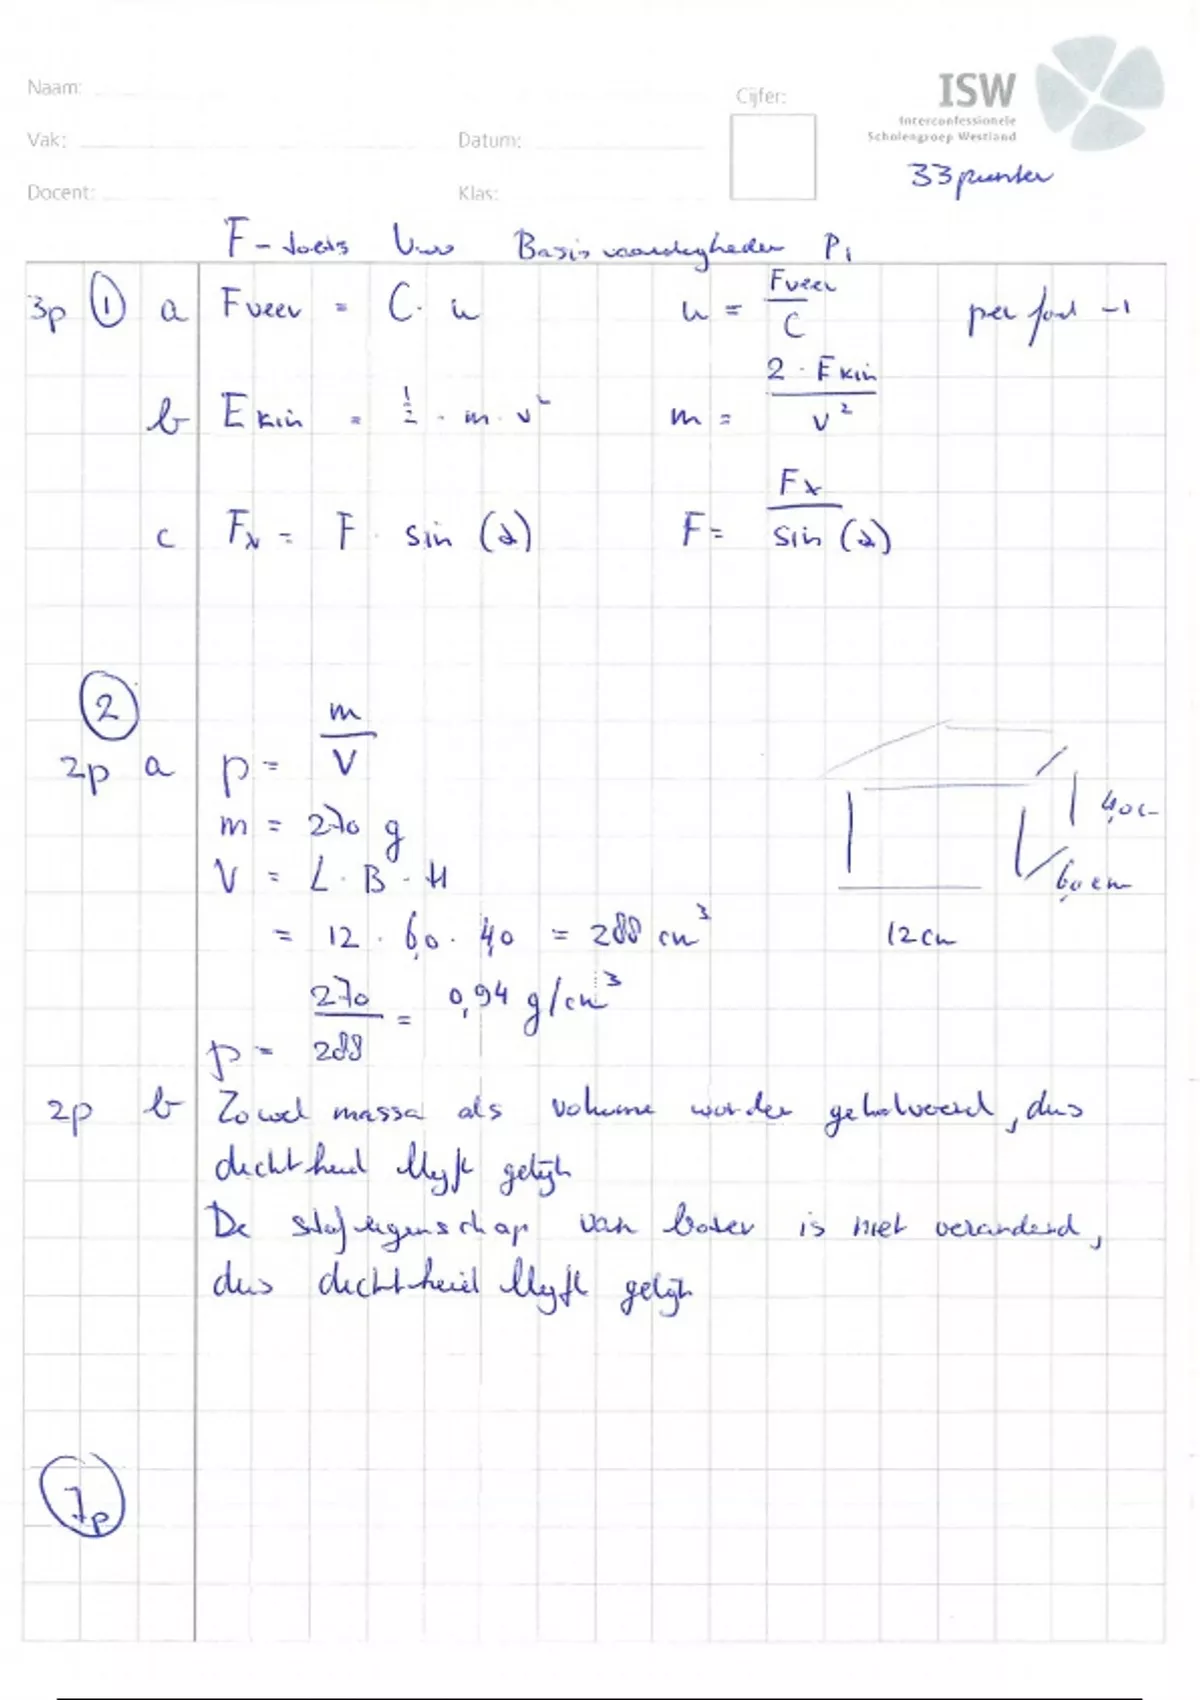 Naam:
Cijfer:
ISW
Interconfessionele
Scholengroep Westland
Vak:
Datum:
33 punten
Docent:
Klas:
F-toets Vwo Basisvaardigheden P1
3p ① a Fveer = C · u u = Fveer / C per fout -1
b Ekin = ½ · m · v² m = 2 · Ekin / v²
c Fx = F · sin (α) F = Fx / sin (α)
②
2p a ρ = m / V
m = 270 g
4,0 cm
V = L · B · H
6,0 cm
= 12 · 6,0 · 4,0 = 288 cm³
12 cm
ρ = 270 / 288 = 0,94 g/cm³
2p b Zowel massa als volume worden gehalveerd, dus
dichtheid blijft gelijk
De stofeigenschap van boter is niet veranderd,
dus dichtheid blijft gelijk
7p